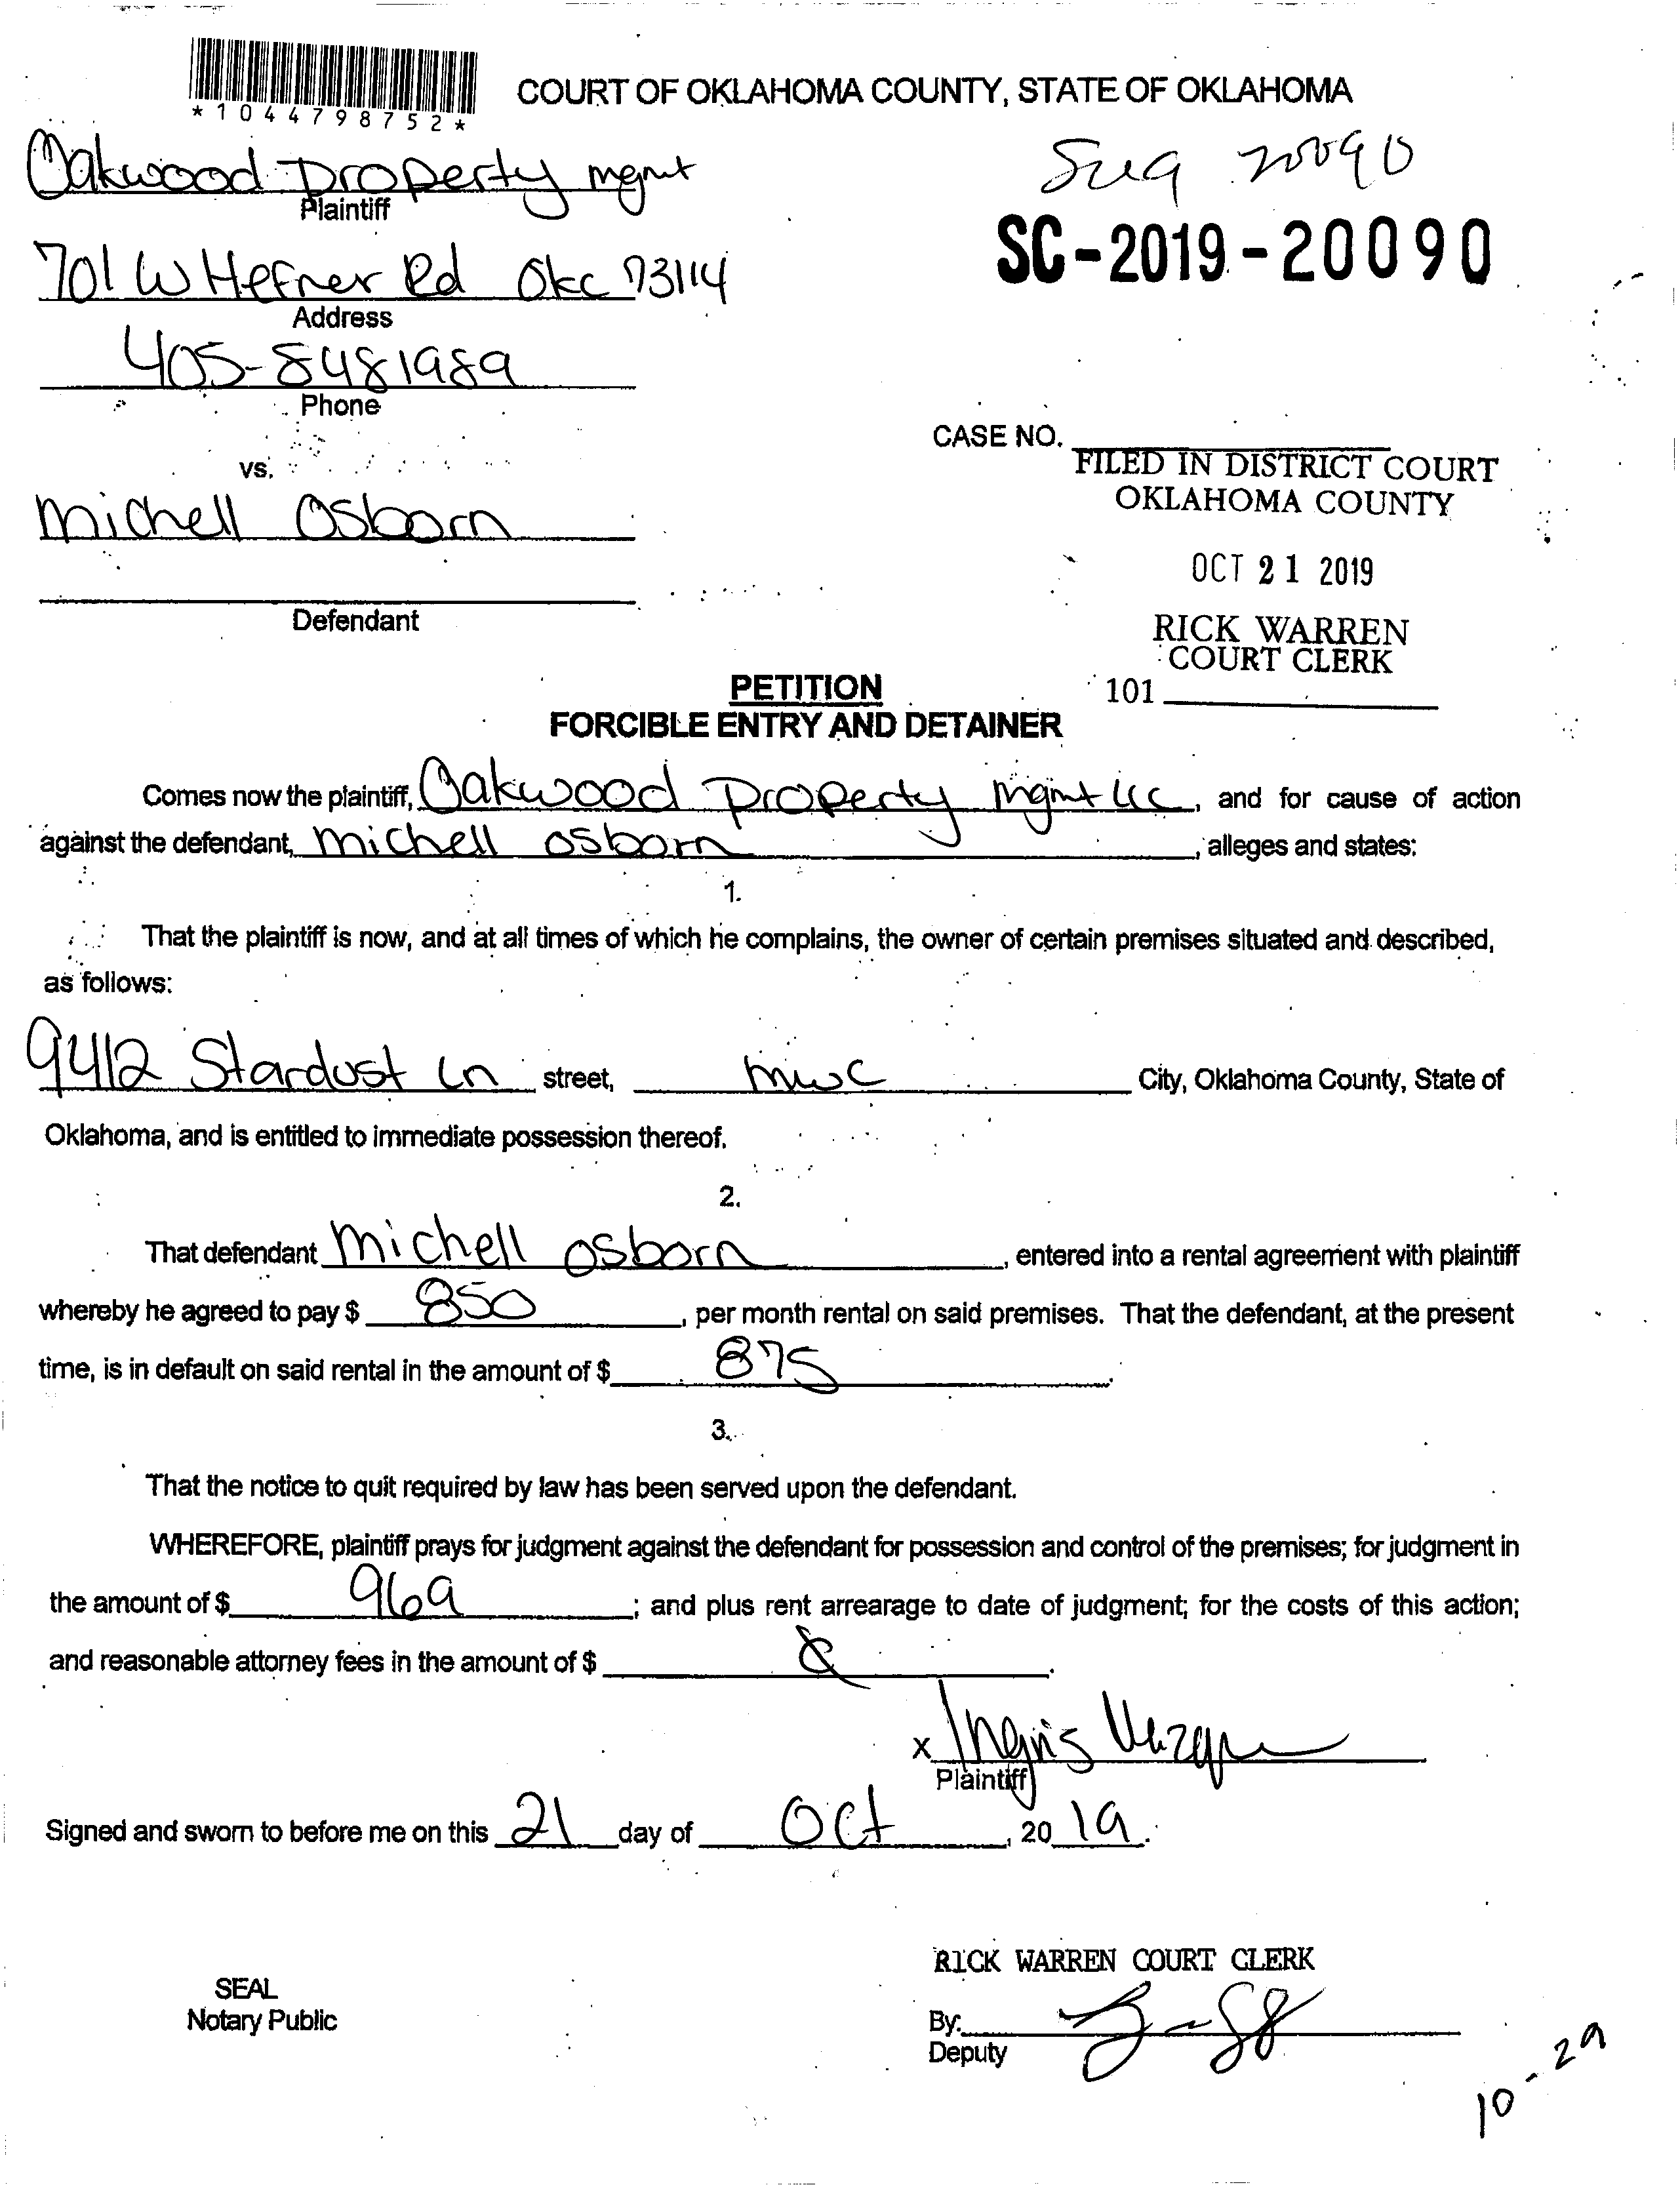 *1044798752*
COURT OF OKLAHOMA COUNTY, STATE OF OKLAHOMA
Oakwood Property mgmt
Plaintiff
20090
SC-2019-20090
701 W Hefner Rd Okc 73114
Address
405-8481989
Phone
CASE NO.
vs.
FILED IN DISTRICT COURT
OKLAHOMA COUNTY
Michell Osborn
OCT 21 2019
Defendant
RICK WARREN
COURT CLERK
101
PETITION
FORCIBLE ENTRY AND DETAINER
Comes now the plaintiff, Oakwood Property Mgmt LLC, and for cause of action
against the defendant, Michell Osborn, alleges and states:
1.
That the plaintiff is now, and at all times of which he complains, the owner of certain premises situated and described,
as follows:
9412 Stardust Ln street, MWC City, Oklahoma County, State of
Oklahoma, and is entitled to immediate possession thereof.
2.
That defendant Michell Osborn, entered into a rental agreement with plaintiff
whereby he agreed to pay $ 850, per month rental on said premises. That the defendant, at the present
time, is in default on said rental in the amount of $ 875.
3.
That the notice to quit required by law has been served upon the defendant.
WHEREFORE, plaintiff prays for judgment against the defendant for possession and control of the premises; for judgment in
the amount of $ 969; and plus rent arrearage to date of judgment; for the costs of this action;
and reasonable attorney fees in the amount of $
x
Plaintiff
Signed and sworn to before me on this 21 day of Oct, 20 19.
RICK WARREN COURT CLERK
SEAL
Notary Public
By:
Deputy
10-29